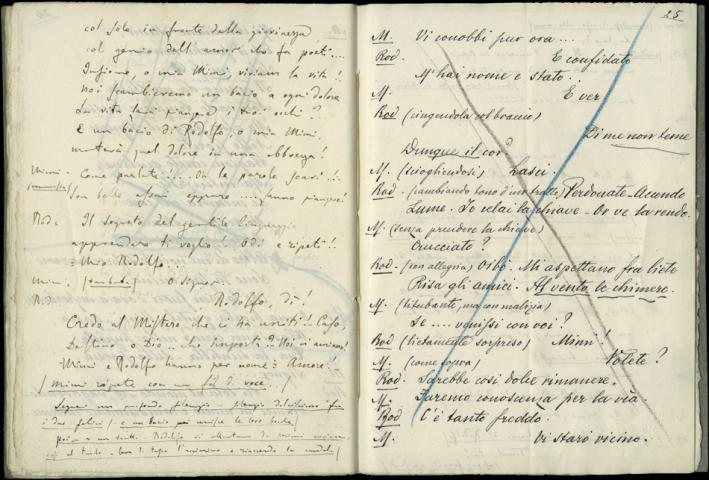 col sole in fronte della giovinezza
col genio dell'amor che fa poeti....
Insieme, o mia Mimì, viviam la vita!
Noi scambieremo un bacio a ogni dolore
La vita farà piangere i tuoi occhi?
E un bacio di Rodolfo, o mia Mimì,
muterà quel dolore in una ebbrezza!
Mimì. Come parlate!... Oh le parole soavi!...
Son belle assai eppure .... fanno piangere!
Rod. Il segreto del gentile linguaggio
apprender ti voglio. Odi e ripeti!
Mio Rodolfo...
Mim. O signor
Rod. Rodolfo, dì!
Credo al Mistero che ci ha uniti! Caso,
Destino o Dio... che importa? Noi ci amiamo!
Mimì e Rodolfo hanno per nome: Amore!
/Mimì ripete con un fil di voce./
Segue un profondo silenzio
i due felici e un bacio poi unisce le loro bocche/
25
M. Vi conobbi pur ora...
Rod. E confidato
M'hai nome e stato..
M. E ver
Rod (cingendola col braccio)
Di me non teme
Dunque il cor?
M. (sciogliendosi) Lasci.
Rod. (cambiando tono d'un tratto) Perdonate. Accendo
Lume. Io celai la chiave - Or ve la rendo.
M. (senza prendere la chiave)
Crucciato?
Rod. (con allegria) Oibò. Mi aspettano fra liete
Risa gli amici. Al vento le chimere.
M. (titubante, ma con malizia)
Se .... venissi con voi?
Rod (lietamente sorpreso) Mimì!
M. (come sopra) Volete?
Rod. Sarebbe così dolce rimanere.
M. Faremo conoscenza per la via.
Rod C'è tanto freddo.
M. Vi starò vicino.